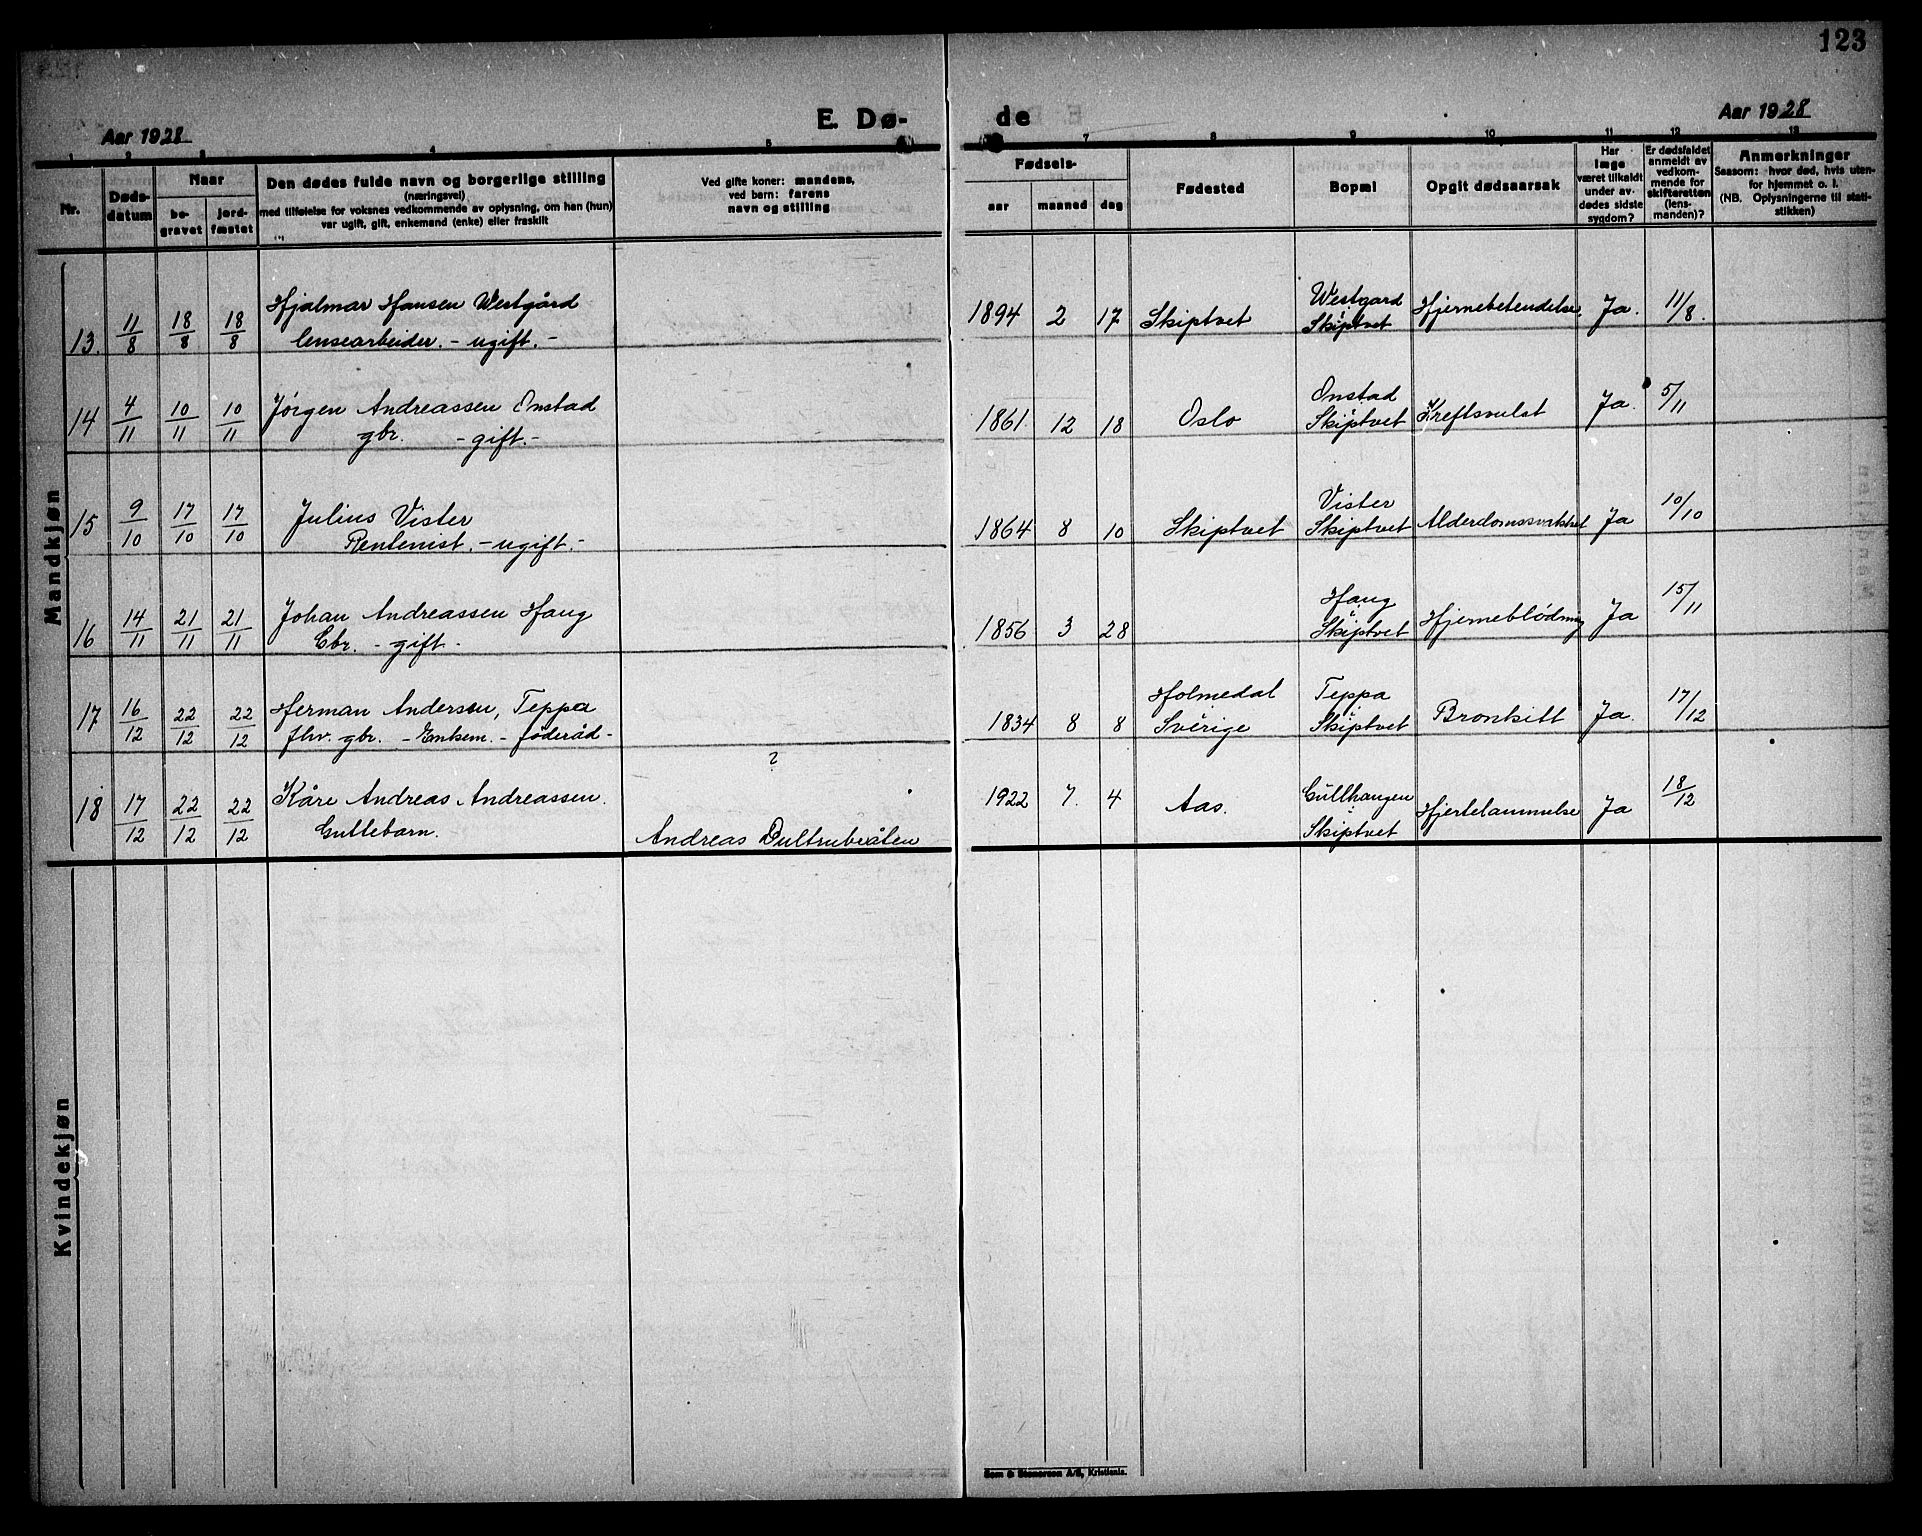 123
Aar 1928
E. Dø-
de
Aar 1928
1 2 3 4 5 7 8 9 10 11 12 13
Nr.
Døds-
datum
Naar
be-
gravet
jord-
fæstet
Den dødes fulde navn og borgerlige stilling
(næringsvei)
med tilføielse for voksnes vedkommende av oplysning, om han (hun)
var ugift, gift, enkemand (enke) eller fraskilt
Ved gifte koner: mandens,
ved børn: farens
navn og stilling
Fødsels-
aar maaned dag
Fødested
Bopæl
Opgit dødsaarsak
Har
læge
været tilkaldt
under av-
dødes sidste
sygdom?
Er dødsfaldet
anmeldt av
vedkom-
mende for
skifteretten
(lens-
manden)?
Anmerkninger
Saasom: hvor død, hvis uten-
for hjemmet o. l.
(NB. Oplysningerne til stati-
stikken)
Mandkjøn
13. 11/8 18/8 18/8 Hjalmar Hansen Westgård
lensearbeider. - ugift. -
1894 2 17 Skiptvet Westgard
Skiptvet Hjernebetendelse. Ja. 11/8.
14 4/11 10/11 10/11 Jörgen Andreassen Onstad
gbr. - gift. -
1861. 12 18 Oslo Onstad
Skiptvet Kreftsvulst Ja. 5/11
15 9/10 17/10 17/10 Julius Vister
Rentenist. - ugift. -
1864 8 10 Skiptvet Vister
Skiptvet Ja 10/10
16 14/11 21/11 21/11 Johan Andreassen Haug
Gbr. - gift -
1856 3 28 Haug
Skiptvet Hjerneblödning Ja 15/11
17 16/12 22/12 22/12 Herman Andersen, Teppa
fhv. gbr. - Enkem. - föderåd -
1834 8 8 Holmedal
Sverige Teppa
Skiptvet Bronkitt Ja. 17/12
18 17/12 22/12 22/12 Kåre Andreas Andreassen.
Guttebarn.
?
Andreas Dultrubråten
1922 7. 4 Aas. Gullhaugen
Skiptvet Hjertelammelse Ja 18/12
Kvindekjøn
Sem & Stenersen A/S, Kristiania.